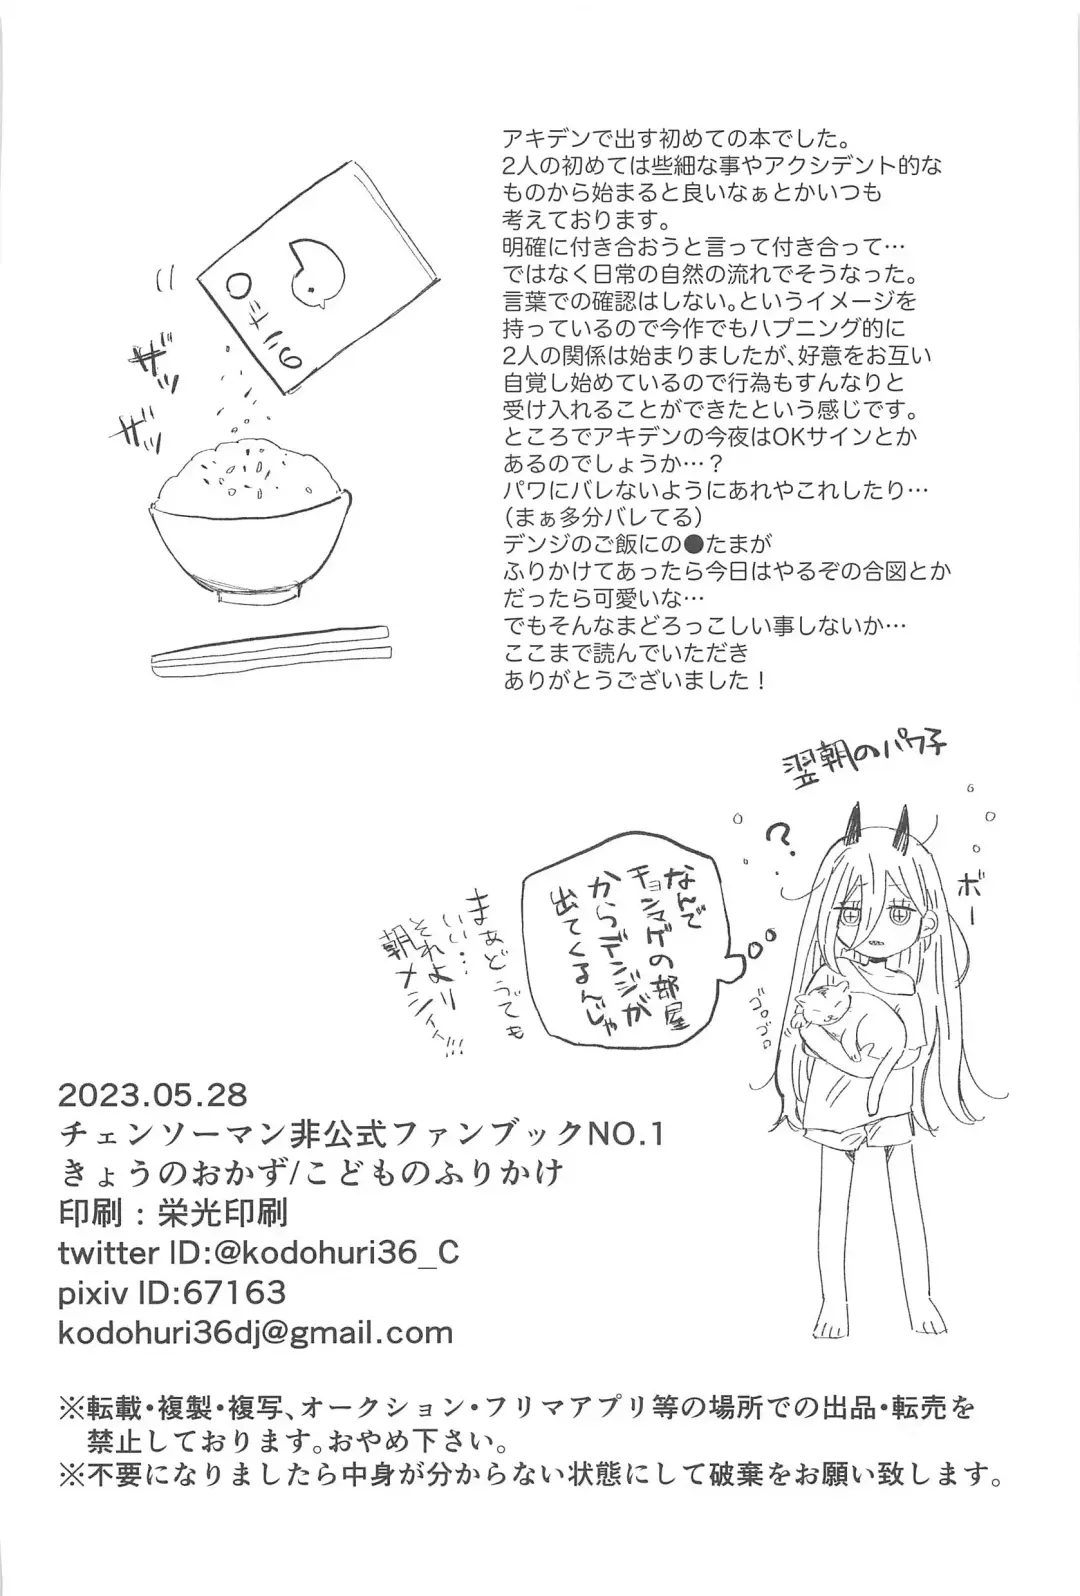 アキデンで出す初めての本でした。
2人の初めては些細な事やアクシデント的な
ものから始まると良いなぁとかいつも
考えております。
明確に付き合おうと言って付き合って…
ではなく日常の自然の流れでそうなった。
言葉での確認はしない。というイメージを
持っているので今作でもハプニング的に
2人の関係は始まりましたが、好意をお互い
自覚し始めているので行為もすんなりと
受け入れることができたという感じです。
ところでアキデンの今夜はOKサインとか
あるのでしょうか…？
パワにバレないようにあれやこれしたり…
（まぁ多分バレてる）
デンジのご飯にの●たまが
ふりかけてあったら今日はやるぞの合図とか
だったら可愛いな…
でもそんなまどろっこしい事しないか…
ここまで読んでいただき
ありがとうございました！
のりたO
ザッ
ザッ
翌朝のパワ子
?
ボー
ゴロゴロ
なんで
チョンマゲの部屋
からデンジが
出てくるんじゃ
まぁどうでも
いい…
それより
朝メシィィ!!!
2023.05.28
チェンソーマン非公式ファンブックNO.1
きょうのおかず/こどものふりかけ
印刷：栄光印刷
twitter ID:@kodohuri36_C
pixiv ID:67163
kodohuri36dj@gmail.com
※転載・複製・複写、オークション・フリマアプリ等の場所での出品・転売を
禁止しております。おやめ下さい。
※不要になりましたら中身が分からない状態にして破棄をお願い致します。